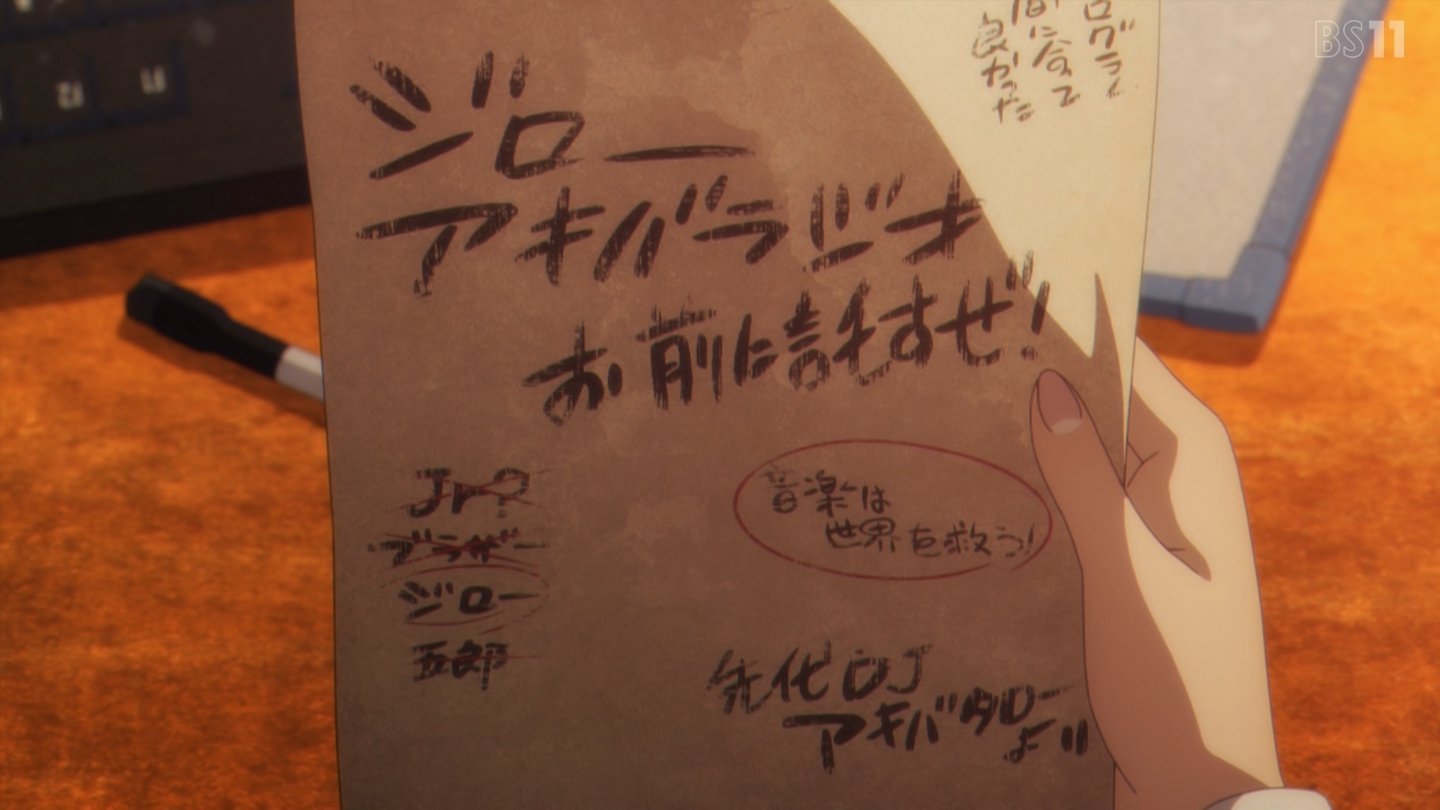 BS11
F2 F1
ログラム
間に合って
良かった
ジロー
アキバラジオ
お前に託すぜ!
Jr?
ブラザー
ジロー
五郎
音楽は
世界を救う!
先化DJ
アキバタロー
より